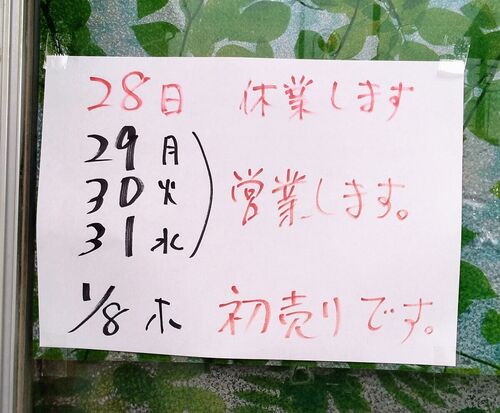 28日 休業します
29月
30火
31水
営業します。
1/8 木 初売りです。